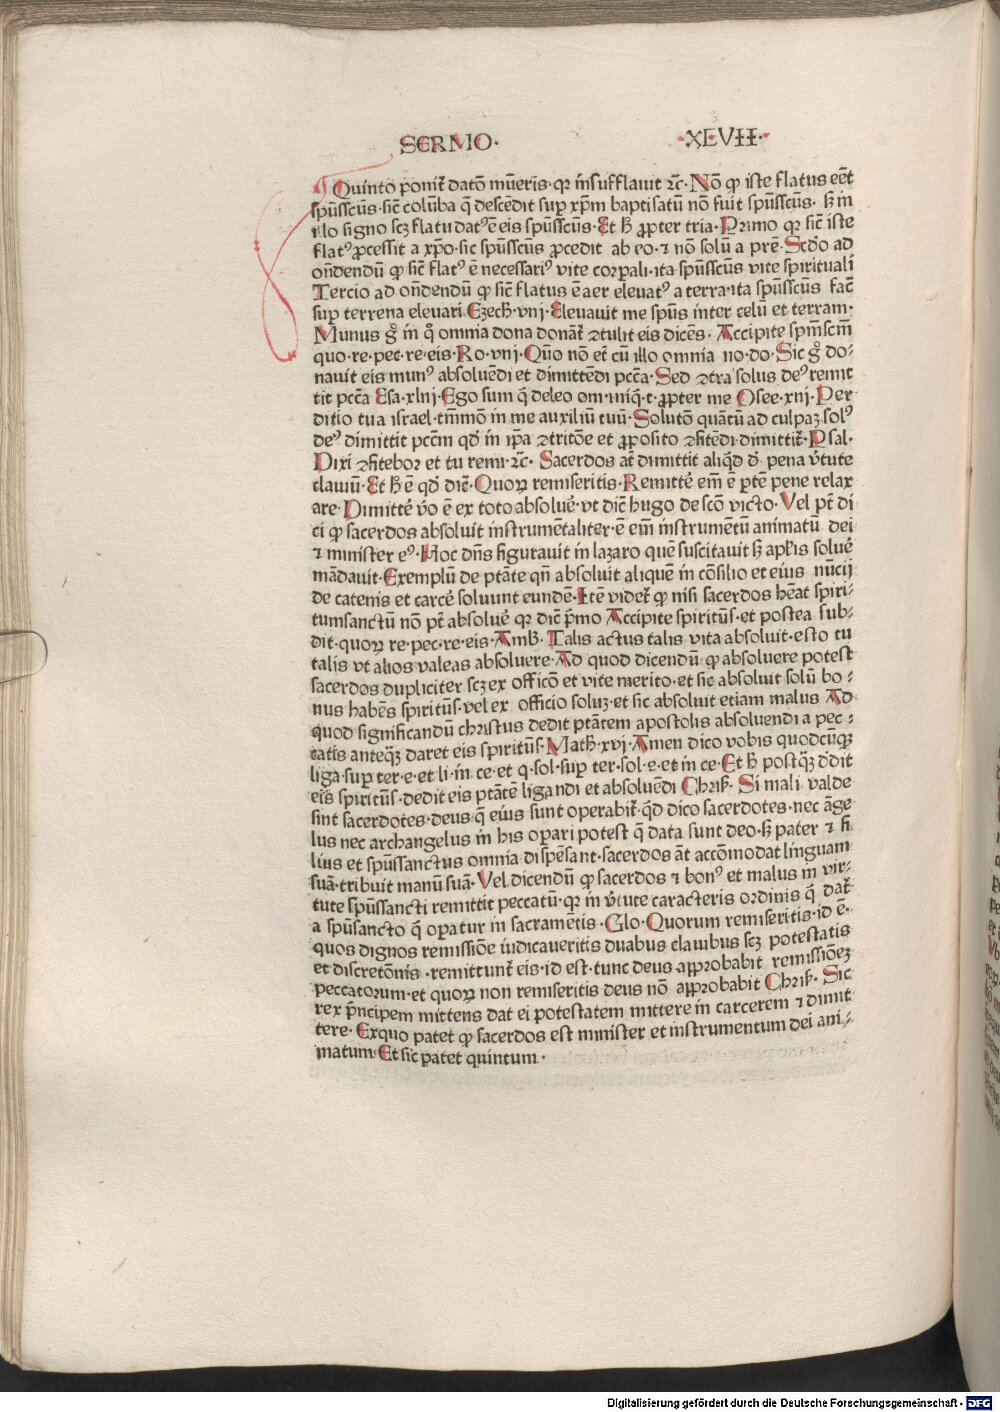 SERMO· ·XLVII·
Quinto ponit̃ datõ mũeris· qꝛ insufflauit ⁊c̃· Nõ ꝙ iste flatus eẽt
spũsscũs· sic̃ colũba q̃ descẽdit suꝑ xp̃m baptisatũ nõ fuit spũsscũs· sꝫ in
illo signo scꝫ flatu datꝰ ẽ eis spũsscũs· Et h̃ ꝓpter tria· Primo qꝛ sic̃ iste
flatꝰ ꝓcessit a xp̃o· sic spũsscũs ꝓcedit ab eo· ⁊ nõ solũ a pr̃e· Scd̃o ad
oñdendũ ꝙ sic̃ flatꝰ ẽ necessariꝰ vite corꝑali· ita spũsscũs vite spirituali
Tercio ad oñdendũ ꝙ sic̃ flatus ẽ aer eleuatꝰ a terra· ita spũsscũs fac̃
suꝑ terrena eleuari· Ezech̃· vnj· Eleuauit me spũs inter celũ et terram·
Munus g̊ in q̊ omnia dona donãt̃ ꝯtulit eis dicẽs· Accipite spm̃scm̃
quo· re· pec· re· eis· Ro· vnj· Qũo nõ et̃ cũ illo omnia no· do· Sic g̊ do⸗
nauit eis munꝰ absoluẽdi et dimittẽdi pcc̃a· Sed ꝯtra solus deꝰ remit
tit pcc̃a Esa· xlnj· Ego sum q̃ deleo om· iniq̃· t· ꝓpter me Osee· xnj· Per
ditio tua israel· tm̃mõ in me auxiliũ tuũ· Solutõ quãtũ ad culpaꝫ solꝰ
deꝰ dimittit pcc̃m qd̃ in ip̃a ꝯtritõe et ꝓposito ꝯfitẽdi dimittit̃· Psal·
Dixi ꝯfitebor et tu remi· ⁊c̃· Sacerdos at̃ dimittit aliq̃d d̃ pena v̾tute
clauiũ· Et h̃ ẽ qd̃ dic̃r· Quoꝝ remiseritis· Remitte᷑ em̃ ẽ ꝑtẽ pene relax
are· Dimitte᷑ v̾o ẽ ex toto absolue᷑· vt dic̃ hugo de scõ victo· Vel pt̃ di
ci ꝙ sacerdos absoluit instrumẽtaliter· ẽ em̃ instrumẽtũ animatũ dei
⁊ minister eꝰ· Hoc dñs figurauit in lazaro quẽ suscitauit sꝫ apl̃is solue᷑
mãdauit· Exemplũ de ptãte qñ absoluit aliquẽ in cõsilio et eius nũcij
de catenis et carce᷑ soluunt eundẽ· Itẽ videt̃ ꝙ nisi sacerdos hẽat spiri⸗
tumsanctũ nõ pt̃ absolue᷑ qꝛ dic̃ p̃mo Accipite spiritũs· et postea sub⸗
dit· quoꝝ re· pec· re· eis· Amb̃· Talis actus talis vita absoluit· esto tu
talis vt alios valeas absoluere· Ad quod dicendũ ꝙ absoluere potest
sacerdos dupliciter scꝫ ex officõ et vite merito· et sic absoluit solũ bo⸗
nus habẽs spiritũs· vel ex officio soluꝫ· et sic absoluit etiam malus Ad
quod significandũ christus dedit ptãtem apostolis absoluendi a pec⸗
catis anteq̃ꝫ daret eis spiritũs· Math̃· xvj· Amen dico vobis quodcũqꝫ
liga· suꝑ ter· e· et li· in ce· et q· sol· suꝑ ter· sol· e· et in ce· Et h̃ postq̃ꝫ d̾dit
eis spiritũs· dedit eis ptãtẽ ligandi et absoluẽdi Chrīs̃· Si mali valde
sint sacerdotes· deus q̃ eius sunt operabit̃· q̃d dico sacerdotes· nec ãge
lus nec archangelus in his oꝑari potest q̃ data sunt deo· sꝫ pater ⁊ fi
lius et spũssanctus omnia dispẽsant· sacerdos ãt accõmodat linguam
suã· tribuit manũ suã· Vel dicendũ ꝙ sacerdos ⁊ bonꝰ et malus in vir⸗
tute spũssancti remittit peccatũ· qꝛ in v̾tute caracteris ordinis q̃ dat̃
a spũsancto q̃ oꝑatur in sacramẽtis· Glo· Quorum remiseritis· id ẽ·
quos dignos remissiõe iudicaueritis duabus clauibus scꝫ potestatis
et discretõnis· remittunt̃ eis· id est· tunc deus approbabit remissiõeꝫ
peccatorum· et quoꝝ non remiseritis deus nõ approbabit Chrīs̃· Sic
rex p̃ncipem mittens dat ei potestatem mittere in carcerem ⁊ dimit
tere· Exquo patet ꝙ sacerdos est minister et instrumentum dei ani⸗
matum· Et sic patet quintum·
Digitalisierung gefördert durch die Deutsche Forschungsgemeinschaft · DFG